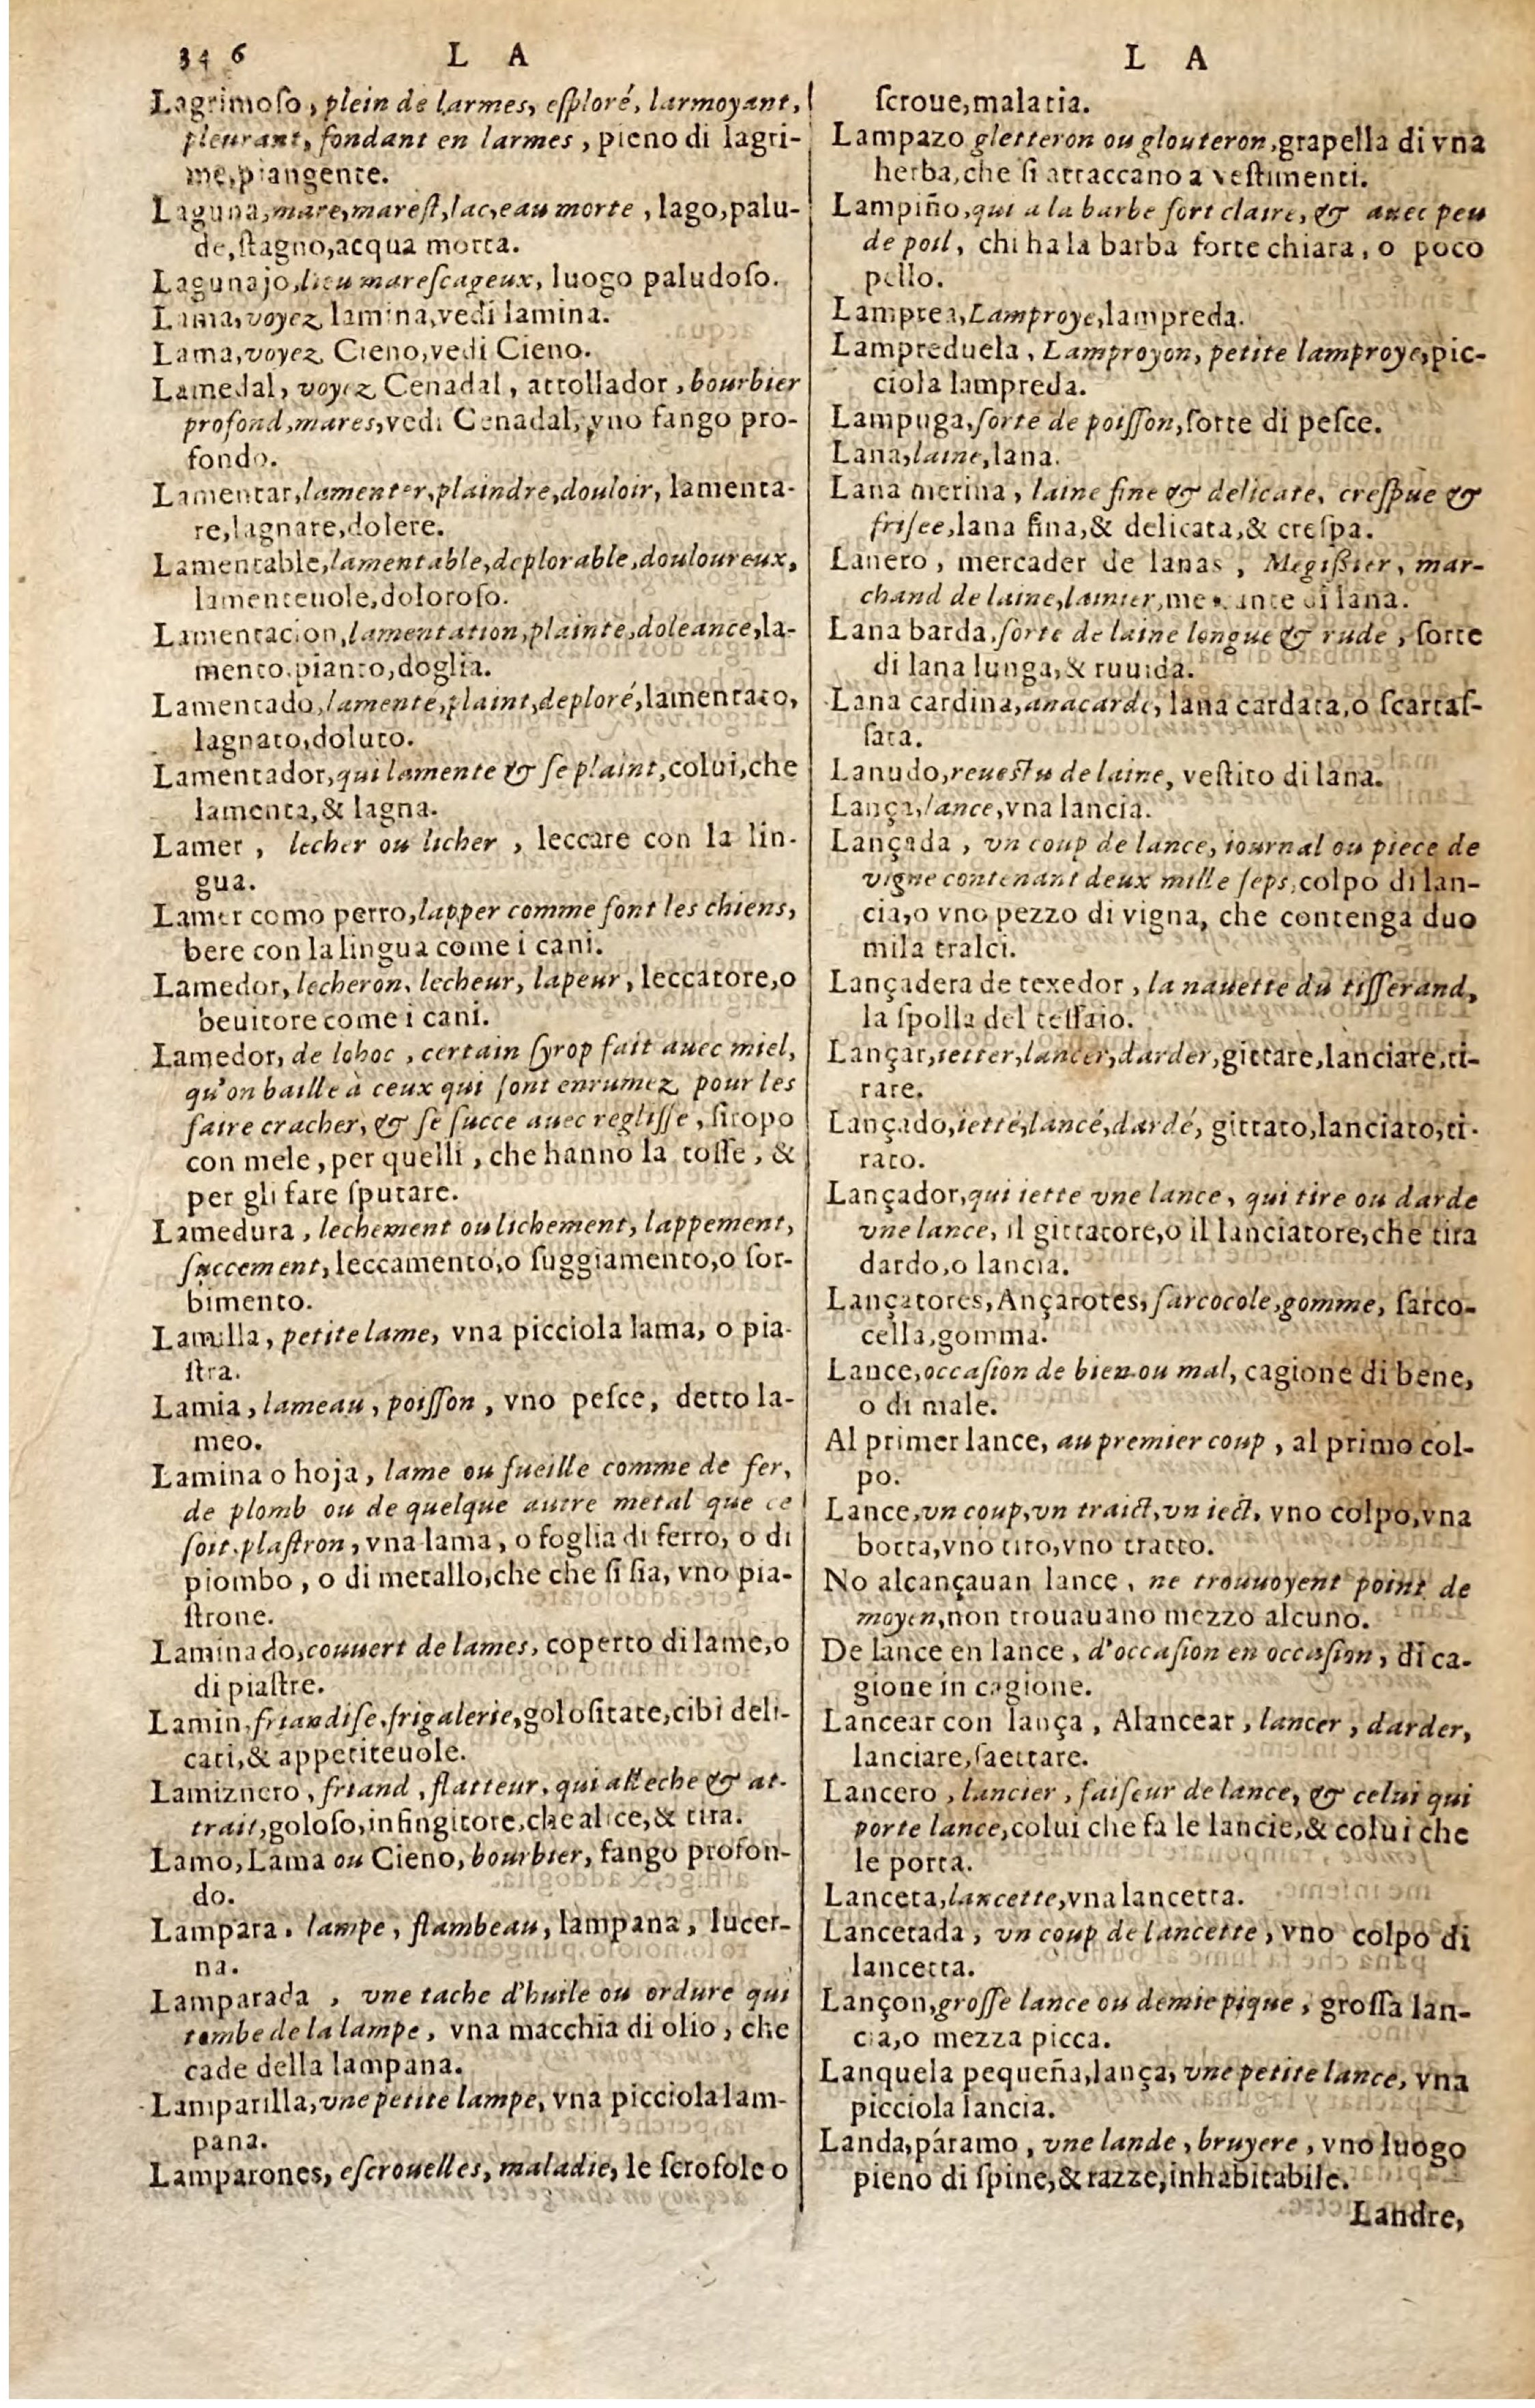 346 L A
Lagrimoſo, plein de larmes, eſploré, larmoyant,
pleurant, fondant en larmes, pieno di lagri-
me, piangente.
Laguna, mare, mareſt, lac, eau morte, lago, palu-
de, ſtagno, acqua morta.
Lagunajo, lieu mareſcageux, luogo paludoſo.
Lama, voyez lamina, vedi lamina.
Lama, voyez Cieno, vedi Cieno.
Lamedal, voyez Cenadal, attollador, bourbier
profond, mares, vedi Cenadal, vno fango pro-
fondo.
Lamentar, lamenter, plaindre, douloir, lamenta-
re, lagnare, dolere.
Lamentable, lamentable, deplorable, douloureux,
lamenteuole, doloroſo.
Lamentacion, lamentation, plainte, doleance, la-
mento, pianto, doglia.
Lamentado, lamenté, plaint, deploré, lamentato,
lagnato, doluto.
Lamentador, qui lamente & ſe plaint, colui, che
lamenta, & lagna.
Lamer, lecher ou licher, leccare con la lin-
gua.
Lamer como perro, lapper comme font les chiens,
bere con la lingua come i cani.
Lamedor, lecheron, lecheur, lapeur, leccatore, o
beuitore come i cani.
Lamedor, de lohoc, certain ſyrop fait auec miel,
qu'on baille à ceux qui ſont enrumez pour les
faire cracher, & ſe ſucce auec regliſſe, ſiropo
con mele, per quelli, che hanno la toſſe, &
per gli fare ſputare.
Lamedura, lechement ou lichement, lappement,
ſuccement, leccamento, o ſuggiamento, o ſor-
bimento.
Lamilla, petite lame, vna picciola lama, o pia-
ſtra.
Lamia, lameau, poiſſon, vno peſce, detto la-
meo.
Lamina o hoja, lame ou fueille comme de fer,
de plomb ou de quelque autre metal que ce
ſoit, plaſtron, vna lama, o foglia di ferro, o di
piombo, o di metallo, che che ſi ſia, vno pia-
ſtrone.
Laminado, couuert de lames, coperto di lame, o
di piaſtre.
Lamin, friandiſe, frigalerie, goloſitate, cibi deli-
cati, & appetiteuole.
Lamiznero, friand, flatteur, qui alleche & at-
trait, goloſo, infingitore, che alice, & tira.
Lamo, Lama ou Cieno, bourbier, fango profon-
do.
Lampara, lampe, flambeau, lampana, lucer-
na.
Lamparada, vne tache d'huile ou ordure qui
tombe de la lampe, vna macchia di olio, che
cade della lampana.
Lamparilla, vne petite lampe, vna picciola lam-
pana.
Lamparones, eſcrouelles, maladie, le ſcrofole o
L A
ſcroue, malatia.
Lampazo gletteron ou glouteron, grapella di vna
herba, che ſi attaccano a veſtimenti.
Lampiño, qui a la barbe fort claire, & auec peu
de poil, chi ha la barba forte chiara, o poco
pello.
Lamprea, Lamproye, lampreda.
Lampreduela, Lamproyon, petite lamproye, pic-
ciola lampreda.
Lampuga, ſorte de poiſſon, ſorte di peſce.
Lana, laine, lana.
Lana merina, laine fine & delicate, creſpue &
friſee, lana fina, & delicata, & creſpa.
Lanero, mercader de lanas, Megiſsier, mar-
chand de laine, lainier, mercante di lana.
Lana barda, ſorte de laine longue & rude, ſorte
di lana lunga, & ruuida.
Lana cardina, anacarde, lana cardata, o ſcartaſ-
ſata.
Lanudo, reueſtu de laine, veſtito di lana.
Lança, lance, vna lancia.
Lançada, vn coup de lance, iournal ou piece de
vigne contenant deux mille ſeps, colpo di lan-
cia, o vno pezzo di vigna, che contenga duo
mila tralci.
Lançadera de texedor, la nauette du tiſſerand,
la ſpolla del teſſaio.
Lançar, ietter, lancer, darder, gittare, lanciare, ti-
rare.
Lançado, ietté, lancé, dardé, gittato, lanciato, ti-
rato.
Lançador, qui iette vne lance, qui tire ou darde
vne lance, il gittatore, o il lanciatore, che tira
dardo, o lancia.
Lançatores, Ançarotes, ſarcocole, gomme, ſarco-
cella, gomma.
Lance, occaſion de bien ou mal, cagione di bene,
o di male.
Al primer lance, au premier coup, al primo col-
po.
Lance, vn coup, vn traict, vn iect, vno colpo, vna
botta, vno tiro, vno tratto.
No alcançauan lance, ne trouuoyent point de
moyen, non trouauano mezzo alcuno.
De lance en lance, d'occaſion en occaſion, di ca-
gione in cagione.
Lancear con lança, Alancear, lancer, darder,
lanciare, ſaettare.
Lancero, lancier, faiſeur de lance, & celui qui
porte lance, colui che fa le lancie, & colui che
le porta.
Lanceta, lancette, vna lancetta.
Lancetada, vn coup de lancette, vno colpo di
lancetta.
Lançon, groſſe lance ou demie pique, groſſa lan-
cia, o mezza picca.
Lanquela pequeña, lança, vne petite lance, vna
picciola lancia.
Landa, páramo, vne lande, bruyere, vno luogo
pieno di ſpine, & razze, inhabitabile.
Landre,